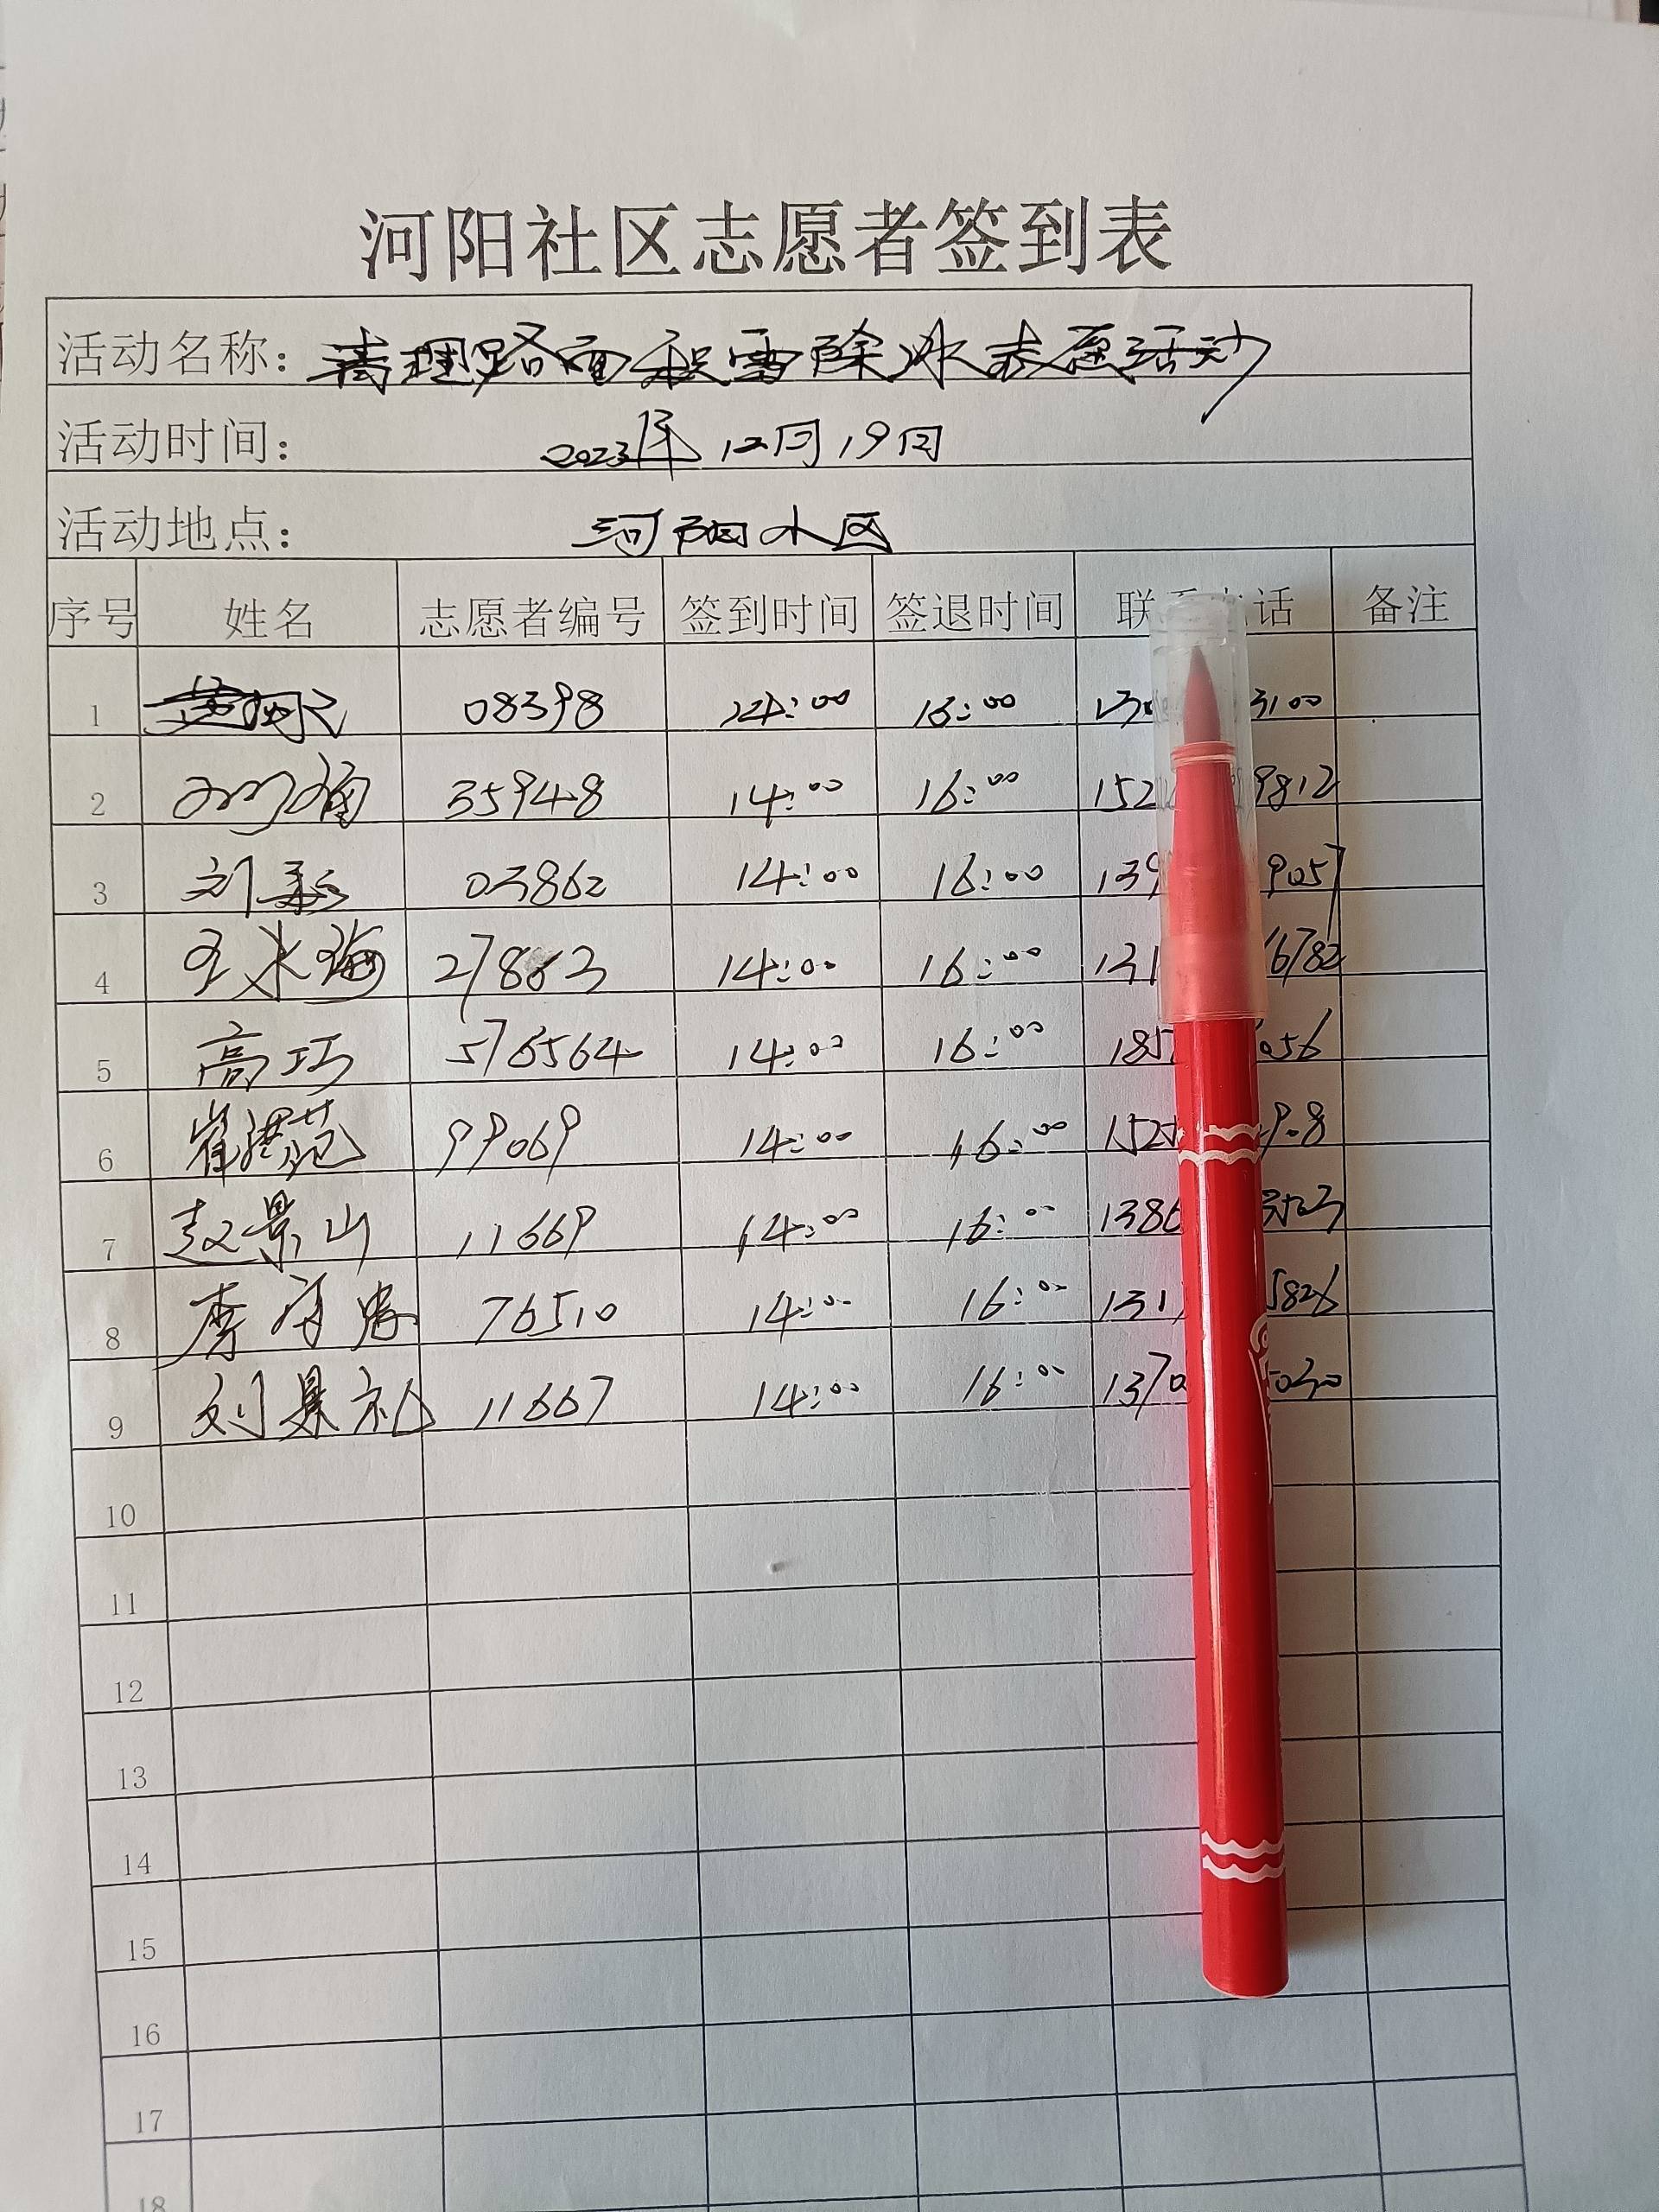 河阳社区志愿者签到表
活动名称: 清理路面积雪除冰志愿活动
活动时间: 2023年12月19日
活动地点: 河阳小区
序号 姓名 志愿者编号 签到时间 签退时间 联 话 备注
1 08398 14:00 16:00 3100
2 35948 14:00 16:00 152 9812
3 刘 03862 14:00 16:00 139 9057
4 27863 14:00 16:00 131 6782
5 高巧 576564 14:00 16:00 185 056
6 崔洪范 99069 14:00 16:00 152 908
7 赵景山 11669 14:00 16:00 138
8 李 76510 14:00 16:00 131 5826
9 刘景礼 11667 14:00 16:00 1370 5030
10
11
12
13
14
15
16
17
18